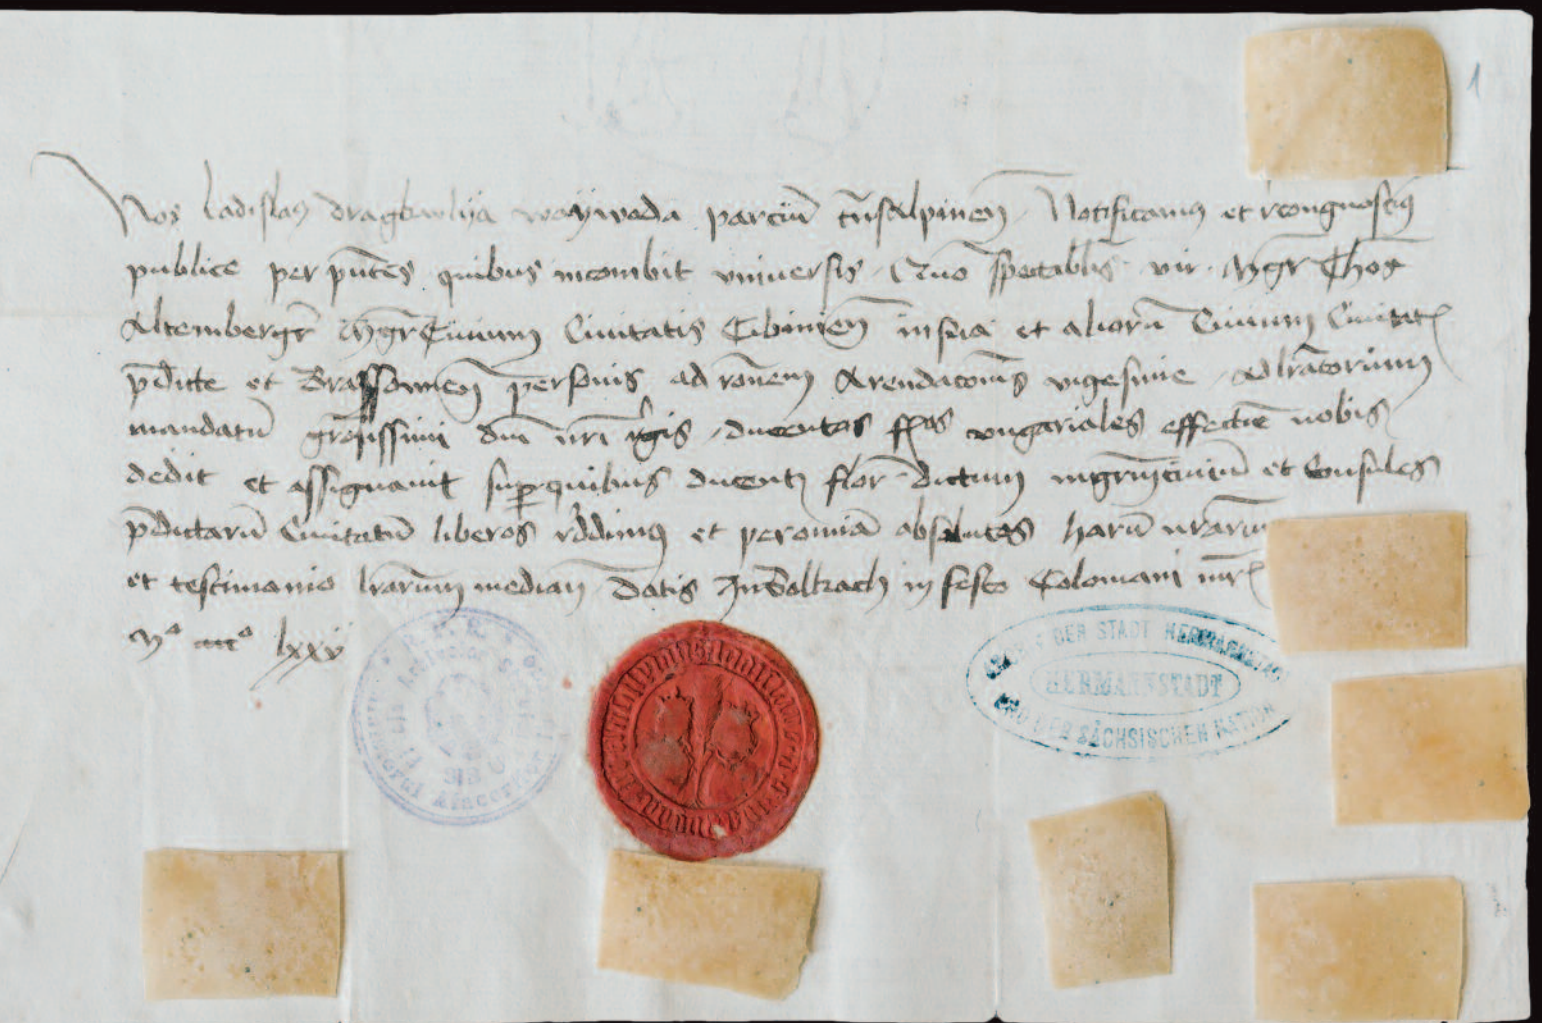 1
Nos ladislaus dragkwlya waywoda parciũ trãsalpinen Notificamus et recongnoscimus
publice per pñtes quibus incombit vniversis Quo spectablis vir Mgr Thos
Altemberger Mgr Civium Civitatis Cibinien in sua et aliorũ Civium Civitatis
p̃dicte et Brassovien personis ad rõnem Arendaconis vigesime Ad lrãtorium
mandatũ grosissimi dñi nr̃i regis ducentos fl̃os vngariales effective nobis
dedit et assignavit super quibus ducentis flor dictum mgrm civiũ et Consules
p̃dictarũ Civitatũ liberos reddimus et per omnia absolutos harũ nrãrum
et testimonio lrãrum median Datis In Balkach in festo Colomani mr̃is
Mº ccccº lxxv
ARCHIV DER STADT HERMANNSTADT
HERMANNSTADT
UND DER SÄCHSISCHEN NATION